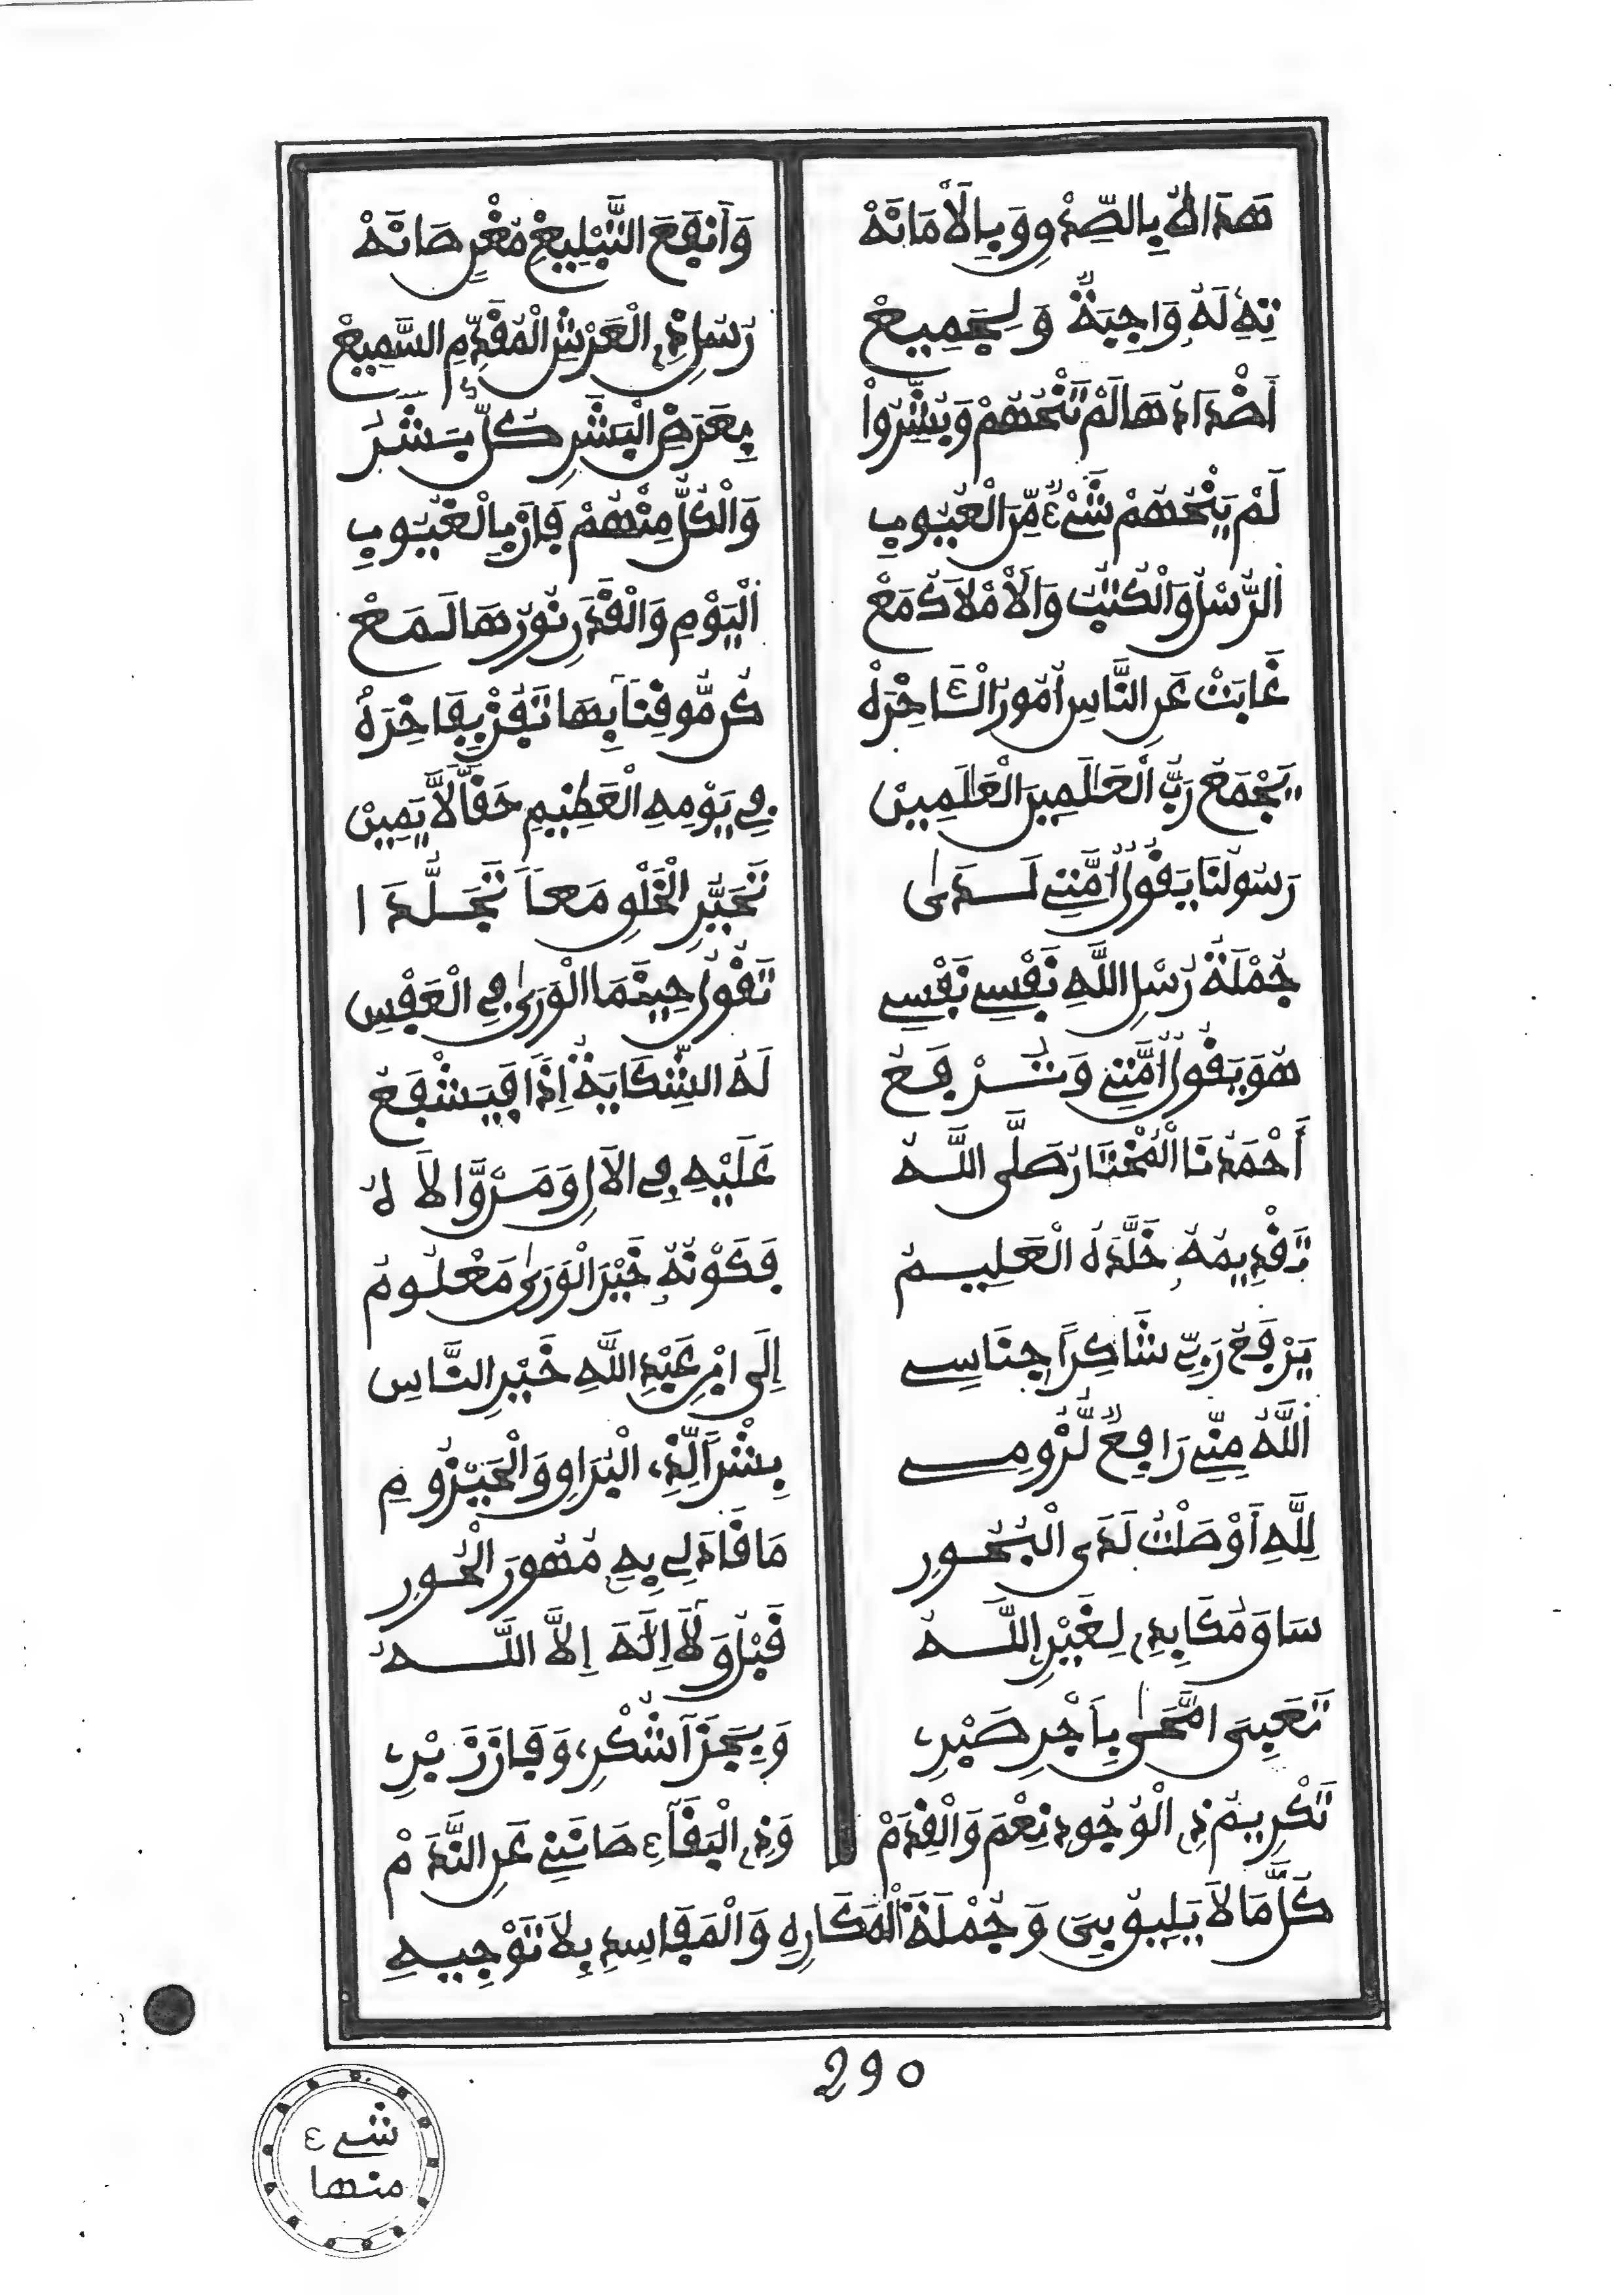 بِالصِّدْقِ وَبِالْأَمَانَهْ وَأَنْفَعَ التَّبْلِيغِ
لَهُ وَاجِبَةٌ وَلِجَمِيعْ رُسْلِ ذِي الْعَرْشِ الْمُقَدَّمِ السَّمِيعْ
أَضْدَادُهَا لَمْ تَنْحُهُمْ وَبَشَّرُواْ بِعَرَضِ الْبَشَرِ كُلَّ بَشَرُ
لَمْ يَنْحُهُمْ شَيْءٌ مِّنَ الْعُيُوبِ وَالْكُلُّ مِنْهُمْ فَازَ بِالْغُيُوبِ
اَلرُّسْلُ وَالْكُتْبُ وَالَامْلَاكُ مَعْ اَلْيَوْمِ وَالْقَدَرِ نُورُهَا لَمَعْ
غَابَتْ عَنِ النَّاسِ أُمُورُ الْآخِرَهْ كُن مُّوقِنًا بِهَا تَفُزْ بِفَاخِرَهْ
يَجْمَعُ رَبُّ الْعَالَمِينَ الْعَالَمِينْ فِي يَوْمِهِ الْعَظِيمِ حَقًّا لَّا يَمِينْ
رَسُولُنَا يَقُولُ أُمَّتِي لَدَى تَحَيُّرِ الْخَلْقِ مَعًا تَجَلَّدَا
جُمْلَةُ رُسْلِ اللَّهِ نَفْسِي نَفْسِي تَقُولُ حِينَمَا الْوَرَى فِي الْعَفْسِ
هُوَ يَقُولُ أُمَّتِي وَتُرْفَعُ لَهُ الشِّكَايَةُ إِذًا فَيَشْفَعُ
أَحْمَدُنَا الْمُخْتَارُ صَلَّى اللَّهُ عَلَيْهِ فِي الْآلِ وَمَن وَّالَاهُ
تَقْدِيمُهُ خَلَّدَهُ الْعَلِيمُ فَكَوْنُهُ خَيْرَ الْوَرَى مَعْلُومُ
يَرْفَعُ رَبِّي شَاكِرًا جِنَاسِي إِلَى ابْنِ عَبْدِ اللَّهِ خَيْرِ النَّاسِ
اَللَّهُ مِنِّي رَافِعٌ لُّزُومِي الْبُرَاقِ وَالْحَيْزُومِ
لِلَّهِ أَوْصَلْتُ لَدَى الْبُحُورِ مَا قَادَ لِي بِهِ مُهُورَ الْحُورِ
سَاوَ مُكَابِدِي لِغَيْرِ اللَّهِ قَبْلُ وَلَا إِلَهَ إِلَّا اللَّهُ
امَّحَى بِأَجْرِ صَبْرِي شُكْرِي وَفَازَ زَبْرِي
تَكْرِيمُ ذِي الْوُجُودِ نِعْمَ وَالْقِدَمْ وَذِي الْبَقَاءِ صَانَنِي عَنِ النَّدَمْ
كُلُّ مَا لَا يَلِيقُ بِي وَجُمْلَةَ الْمَكَارِهِ وَالْمَفَاسِدِ بِلَا تَوْجِيهِ
290
شيء
منها